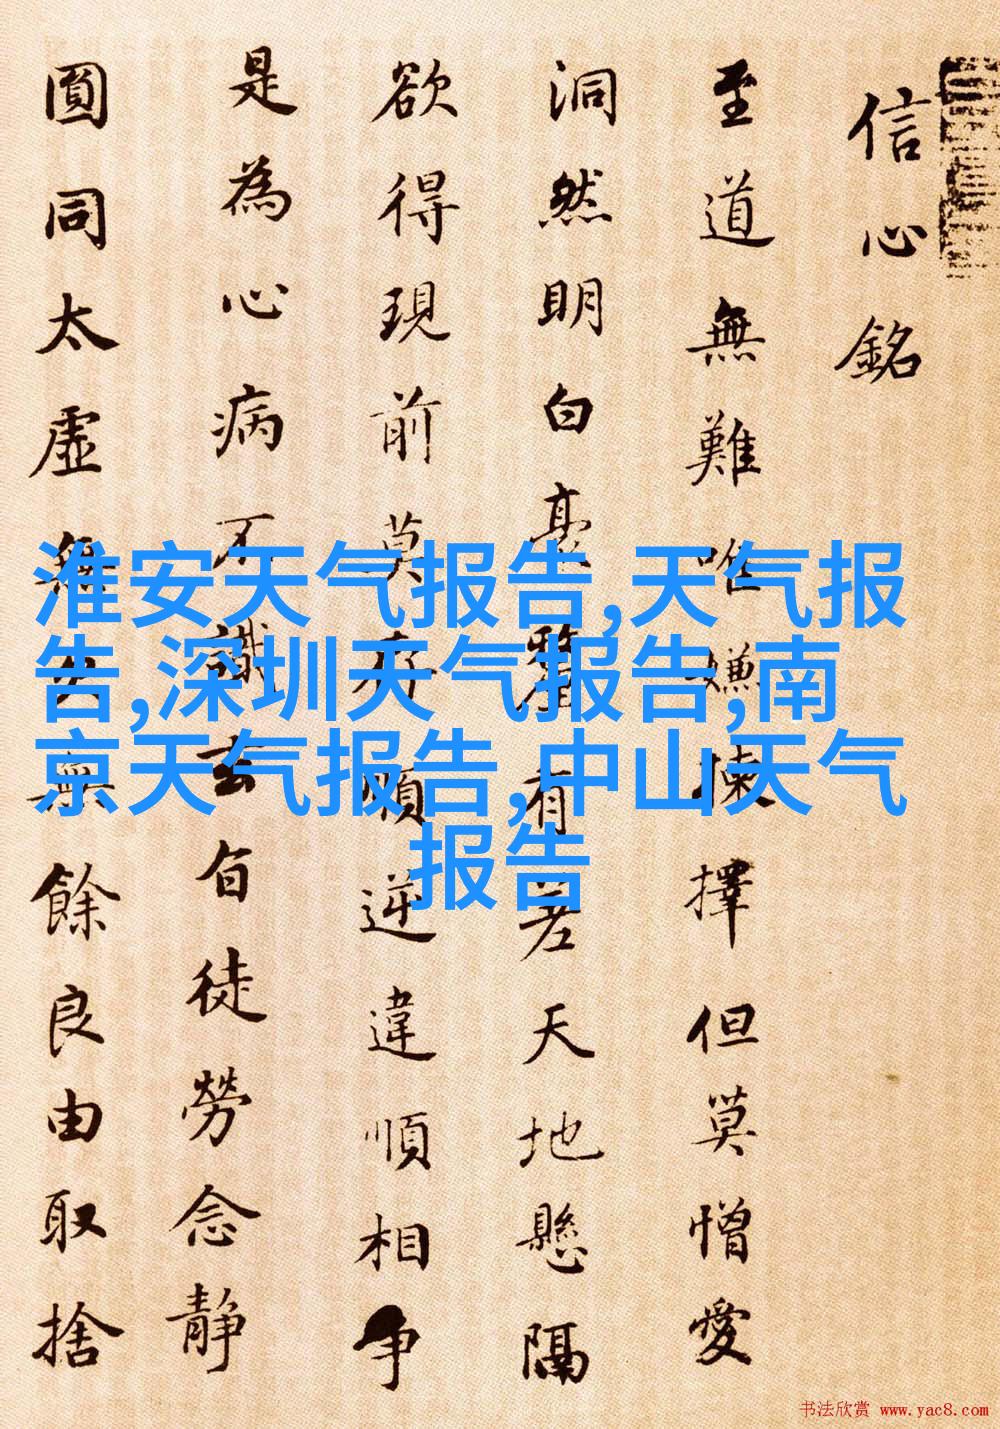 信心銘
至道無難唯嫌揀擇但莫憎愛
洞然明白毫釐有差天地懸隔
欲得現前莫存順逆違順相争
是為心病不識玄旨徒勞念静
圓同太虛無欠無餘良由取捨
淮安天气报告,天气报
告,深圳天气报告,南
京天气报告,中山天气
报告
书法欣赏 www.yac8.com